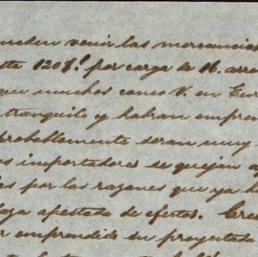 pueden venir las mercancia
ste 120$ por carga de 16. arro
que muchos como V. en Eur
tranquilo y habran empren
probablemente seran muy
os importadores se quejan a
es por las razones que ya h
laza apestada de efectos. Cre
r emprendido su proyectado